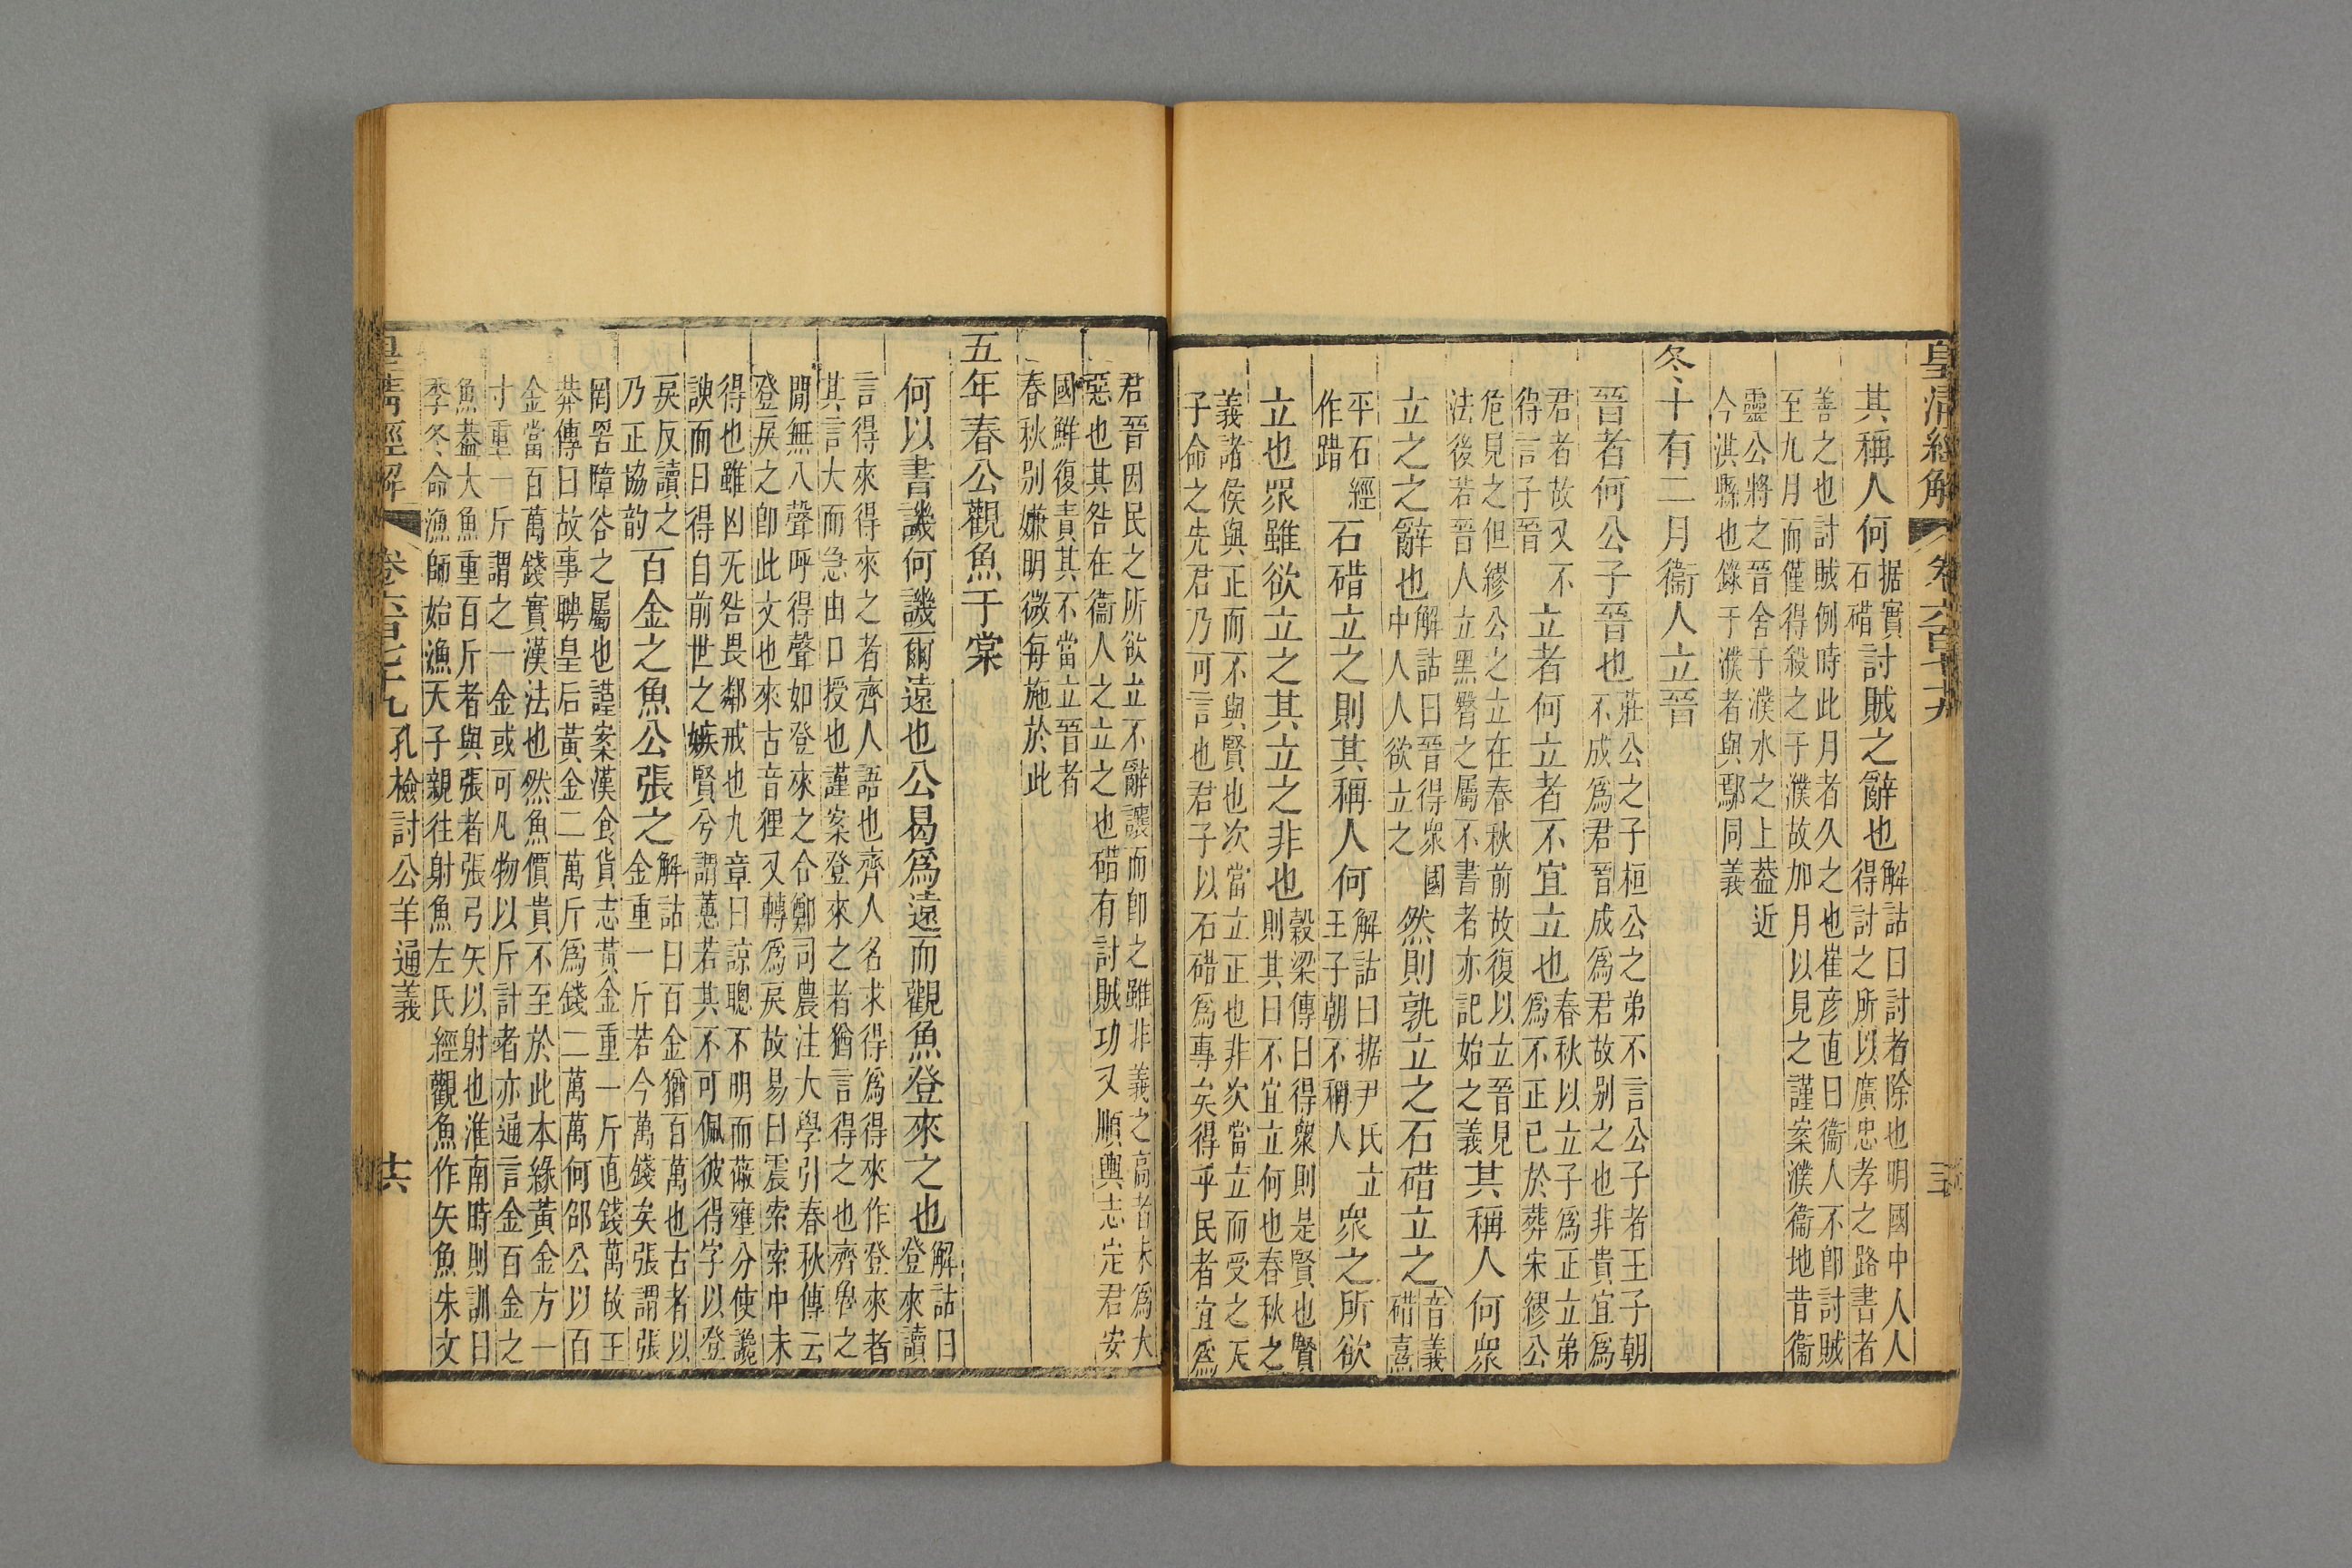 皇清經解　卷六百七十九
其稱人何据實石碏討賊之辭也解詁曰討者除也明國中人人
得討之所以廣忠孝之路書者
善之也討賊例時此月者久之也崔彦直曰衞人不卽討賊
至九月而僅得殺之于濮故加月以見之謹案濮衞地昔衞
靈公將之晉舍于濮水之上葢近
今淇縣也錄于濮者與鄢同義
冬十有二月衞人立晉
晉者何公子晉也莊公之子桓公之弟不言公子者王子朝
不成爲君晉成爲君故别之也非貴宜爲
君者故又不得言子晉立者何立者不宜立也春秋以立子爲正立弟
爲不正已於葬宋繆公
危見之但繆公之立在春秋前故復以立晉見
法後若晉人立黑臀之屬不書者亦記始之義其稱人何眾
立之之辭也解詁曰晉得眾國中人人欲立之然則孰立之石碏立之音義
碏熹
平石經作踖石碏立之則其稱人何解詁曰据尹氏立王子朝不稱人眾之所欲
立也眾雖欲立之其立之非也穀梁傳曰得眾則是賢也賢
則其曰不宜立何也春秋之
義諸侯與正而不與賢也次當立正也非次當立而受之天
子命之先君乃可言也君子以石碏爲專矣得乎民者宜爲
君晉因民之所欲立不辭讓而卽之雖非義之高者未爲大
惡也其咎在衞人之立之也碏有討賊功又順輿志定君安
國鮮復責其不當立晉者
春秋别嫌明微每施於此
五年春公觀魚于棠
何以書譏何譏爾遠也公曷爲遠而觀魚登來之也解詁曰
登來讀
言得來得來之者齊人語也齊人名求得爲得來作登來者
其言大而急由口授也謹案登來之者猶言得之也齊魯之
閒無入聲呼得聲如登來之合鄭司農注大學引春秋傳云
登戾之卽此文也來古音狸又轉爲戾故易曰震索索中未
得也雖凶无咎畏鄰戒也九章曰諒聰不明而蔽壅兮使讒
諛而日得自前世之嫉賢兮謂蕙若其不可佩彼得字以登
戾反讀之乃正協韵百金之魚公張之解詁曰百金猶百萬也古者以
金重一斤若今萬錢矣張謂張
罔罟障谷之屬也謹案漢食貨志黃金重一斤直錢萬故王
莽傳曰故事聘皇后黃金二萬斤爲錢二萬萬何邵公以百
金當百萬錢實漢法也然魚價貴不至於此本緣黃金方一
寸重一斤謂之一金或可凡物以斤計者亦通言金百金之
魚葢大魚重百斤者與張者張弓矢以射也淮南時則訓曰
季冬命漁師始漁天子親往射魚左氏經觀魚作矢魚朱文
皇清經解　卷六百七十九　孔檢討公羊通義　十六